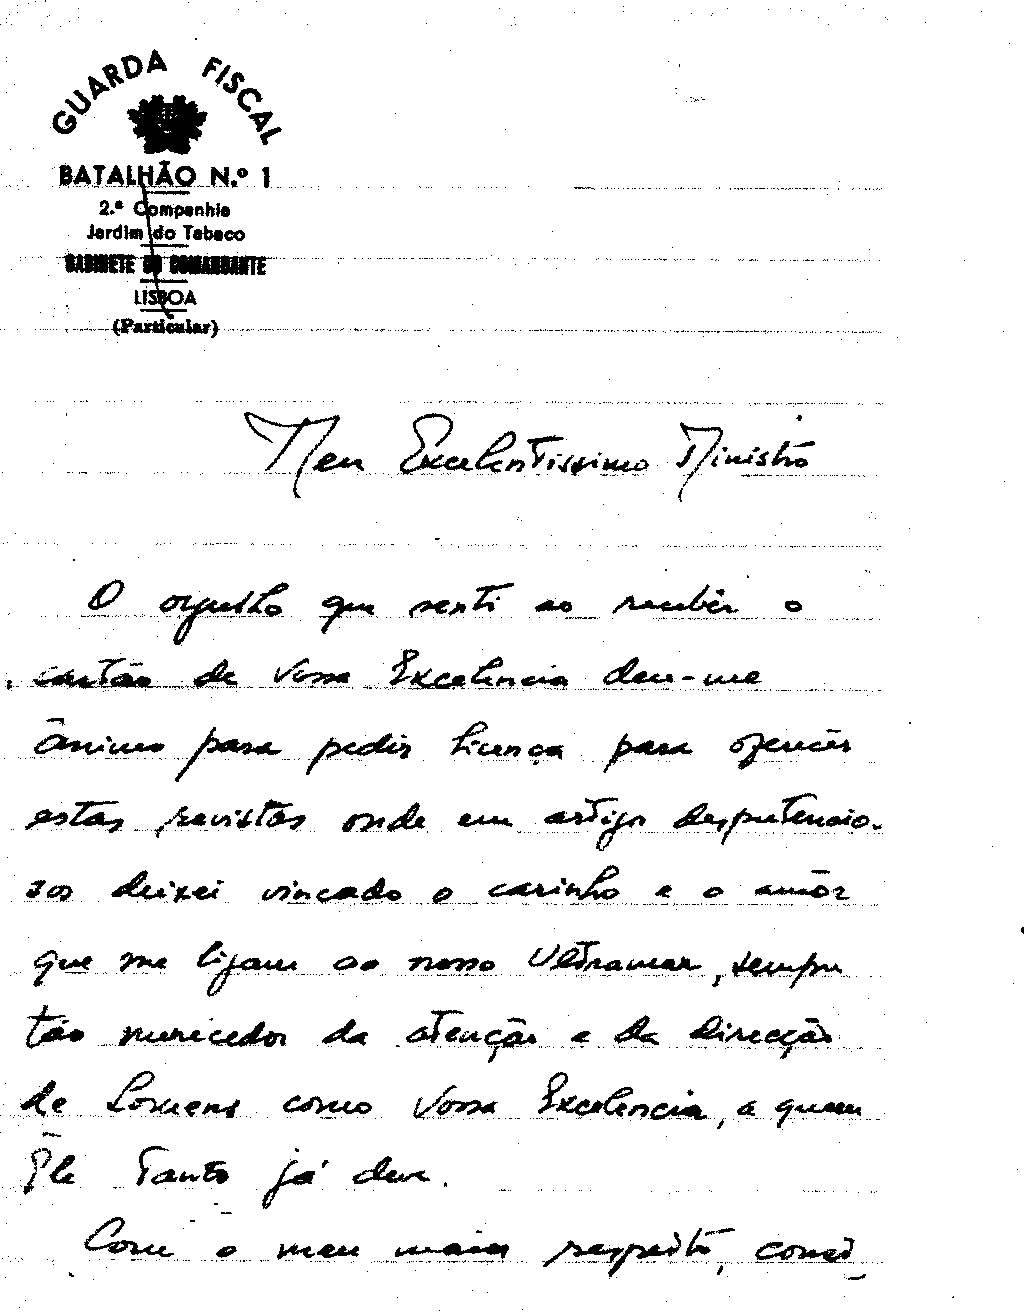 GUARDA FISCAL
BATALHÃO N.º 1
2.ª Companhia
Jardim do Tabaco
GABINETE DO COMANDANTE
LISBOA
(Particular)
Meu Excelentissimo Ministro
O orgulho que senti ao recebêr o
cartão de Vossa Excelencia deu-me
ânimo para pedir licença para oferecêr
estas revistas onde em artigo despretencio-
sos deixei vincado o carinho e o amôr
que me ligam ao nosso Ultramar, sempre
tão merecedor da atenção e da direcção
de homens como Vossa Excelencia, a quem
Êle tanto já deve.
Com o meu maior respeito, consi